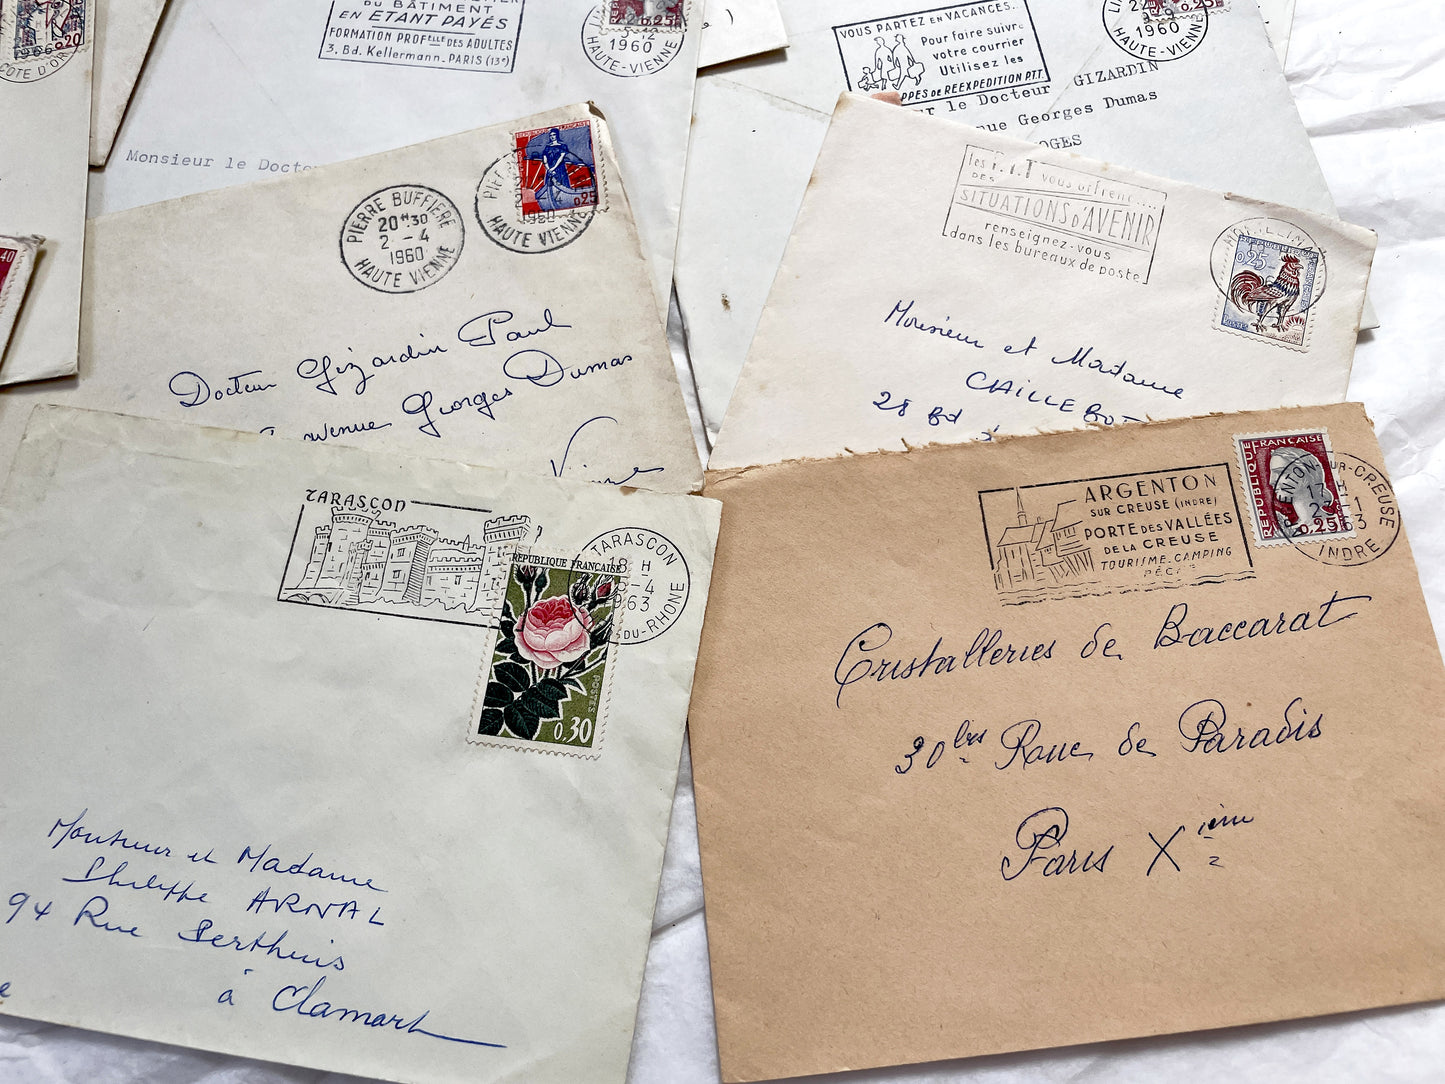 0,20
1966
COTE D'OR
40
DU BÂTIMENT
EN ETANT PAYÉS
FORMATION PROFelle DES ADULTES
3, Bd. Kellermann. PARIS (13e)
0,25
1960
HAUTE-VIENNE
Monsieur le Docte
)
VOUS PARTEZ EN VACANCES...
Pour faire suivre
votre courrier
Utilisez les
PPES DE REEXPEDITION PTT.
22
9-9
1960
HAUTE-VIENNE
r le Docteur GIZARDIN
nue Georges Dumas
OGES
PIERRE BUFFIERE
20H30
2 -4
1960
HAUTE VIENNE
REPUBLIQUE FRANÇAISE
0,25
PIE
1960
HAUTE VIENNE
Docteur Gizardin Paul
Avenue Georges Dumas
Vienne
les P.T.T vous offrent....
DES
SITUATIONS d'AVENIR
renseignez-vous
dans les bureaux de poste
0,25
Monsieur et Madame
CAILLEBOT
28 Bd
TARASCON
TARASCON
18 H
-4
1963
DU-RHONE
REPUBLIQUE FRANÇAISE
POSTES
0,30
Monsieur et Madame
Philippe ARNAL
94 Rue Berthuis
à Clamart
ARGENTON
SUR CREUSE (INDRE)
PORTE DES VALLÉES
DE LA CREUSE
TOURISME-CAMPING
REPUBLIQUE FRANÇAISE
0,25
ENTON-SUR-CREUSE
17 H
INDRE
Cristalleries de Baccarat
30bis Rue de Paradis
Paris Xième